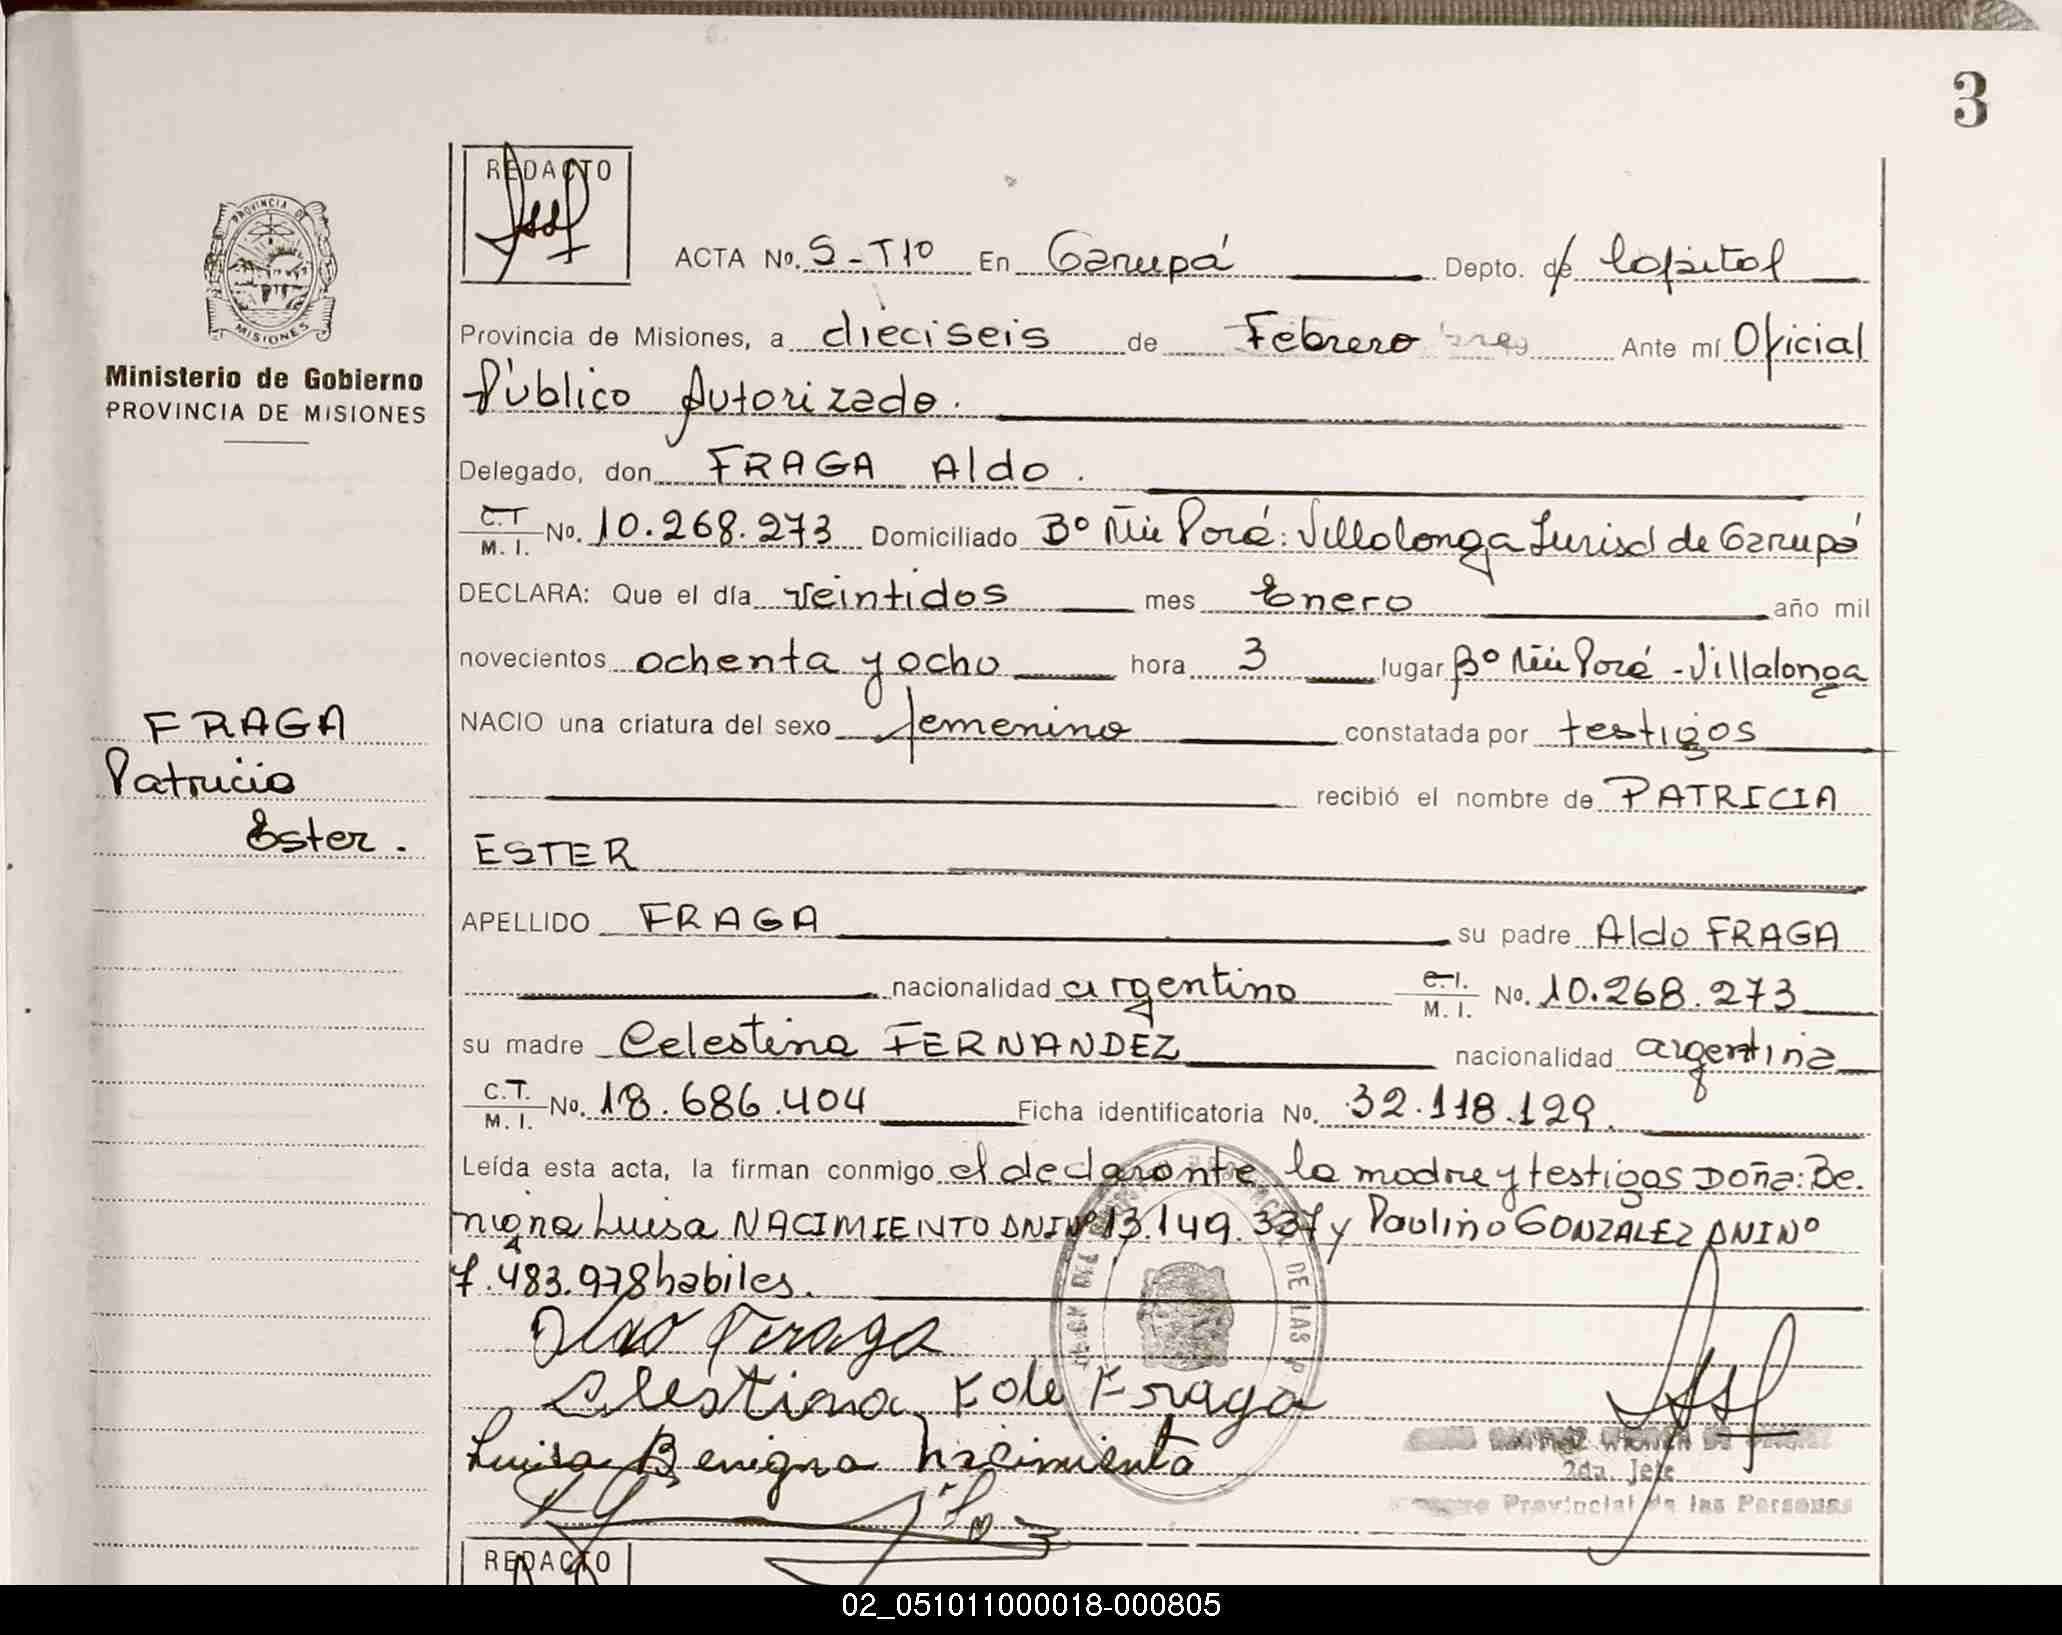 3
REDACTO
PROVINCIA DE
MISIONES
Ministerio de Gobierno
PROVINCIA DE MISIONES
ACTA Nº. 5-Tº En Garupá Depto. de Capital
Provincia de Misiones, a dieciseis de Febrero Ante mí Oficial
Público Autorizado.
Delegado, don FRAGA Aldo.
C.I. M. I. Nº. 10.268.273 Domiciliado Bº Ñu Porá: Villalonga Jurisd de Garupá
DECLARA: Que el día veintidos mes Enero año mil
novecientos ochenta y ocho hora 3 lugar Bº Ñu Porá - Villalonga
NACIO una criatura del sexo femenino constatada por testigos
recibió el nombre de PATRICIA
ESTER
FRAGA
Patricia
Ester.
APELLIDO FRAGA su padre Aldo FRAGA
nacionalidad argentino C.I. M. I. Nº. 10.268.273
su madre Celestina FERNANDEZ nacionalidad argentina
C.I. M. I. Nº. 18.686.404 Ficha identificatoria Nº. 32.118.129.
Leída esta acta, la firman conmigo el declarante la madre y testigos Doña: Be.
nigna Luisa NACIMIENTO DNINº 13.149.337 y Paulino GONZALEZ DNINº
7.483.978 habiles.
Aldo Fraga
Celestina F de Fraga
Luisa Benigna Nacimiento
2da. Jefe
Provincial de las Personas
REDACTO
02_051011000018-000805